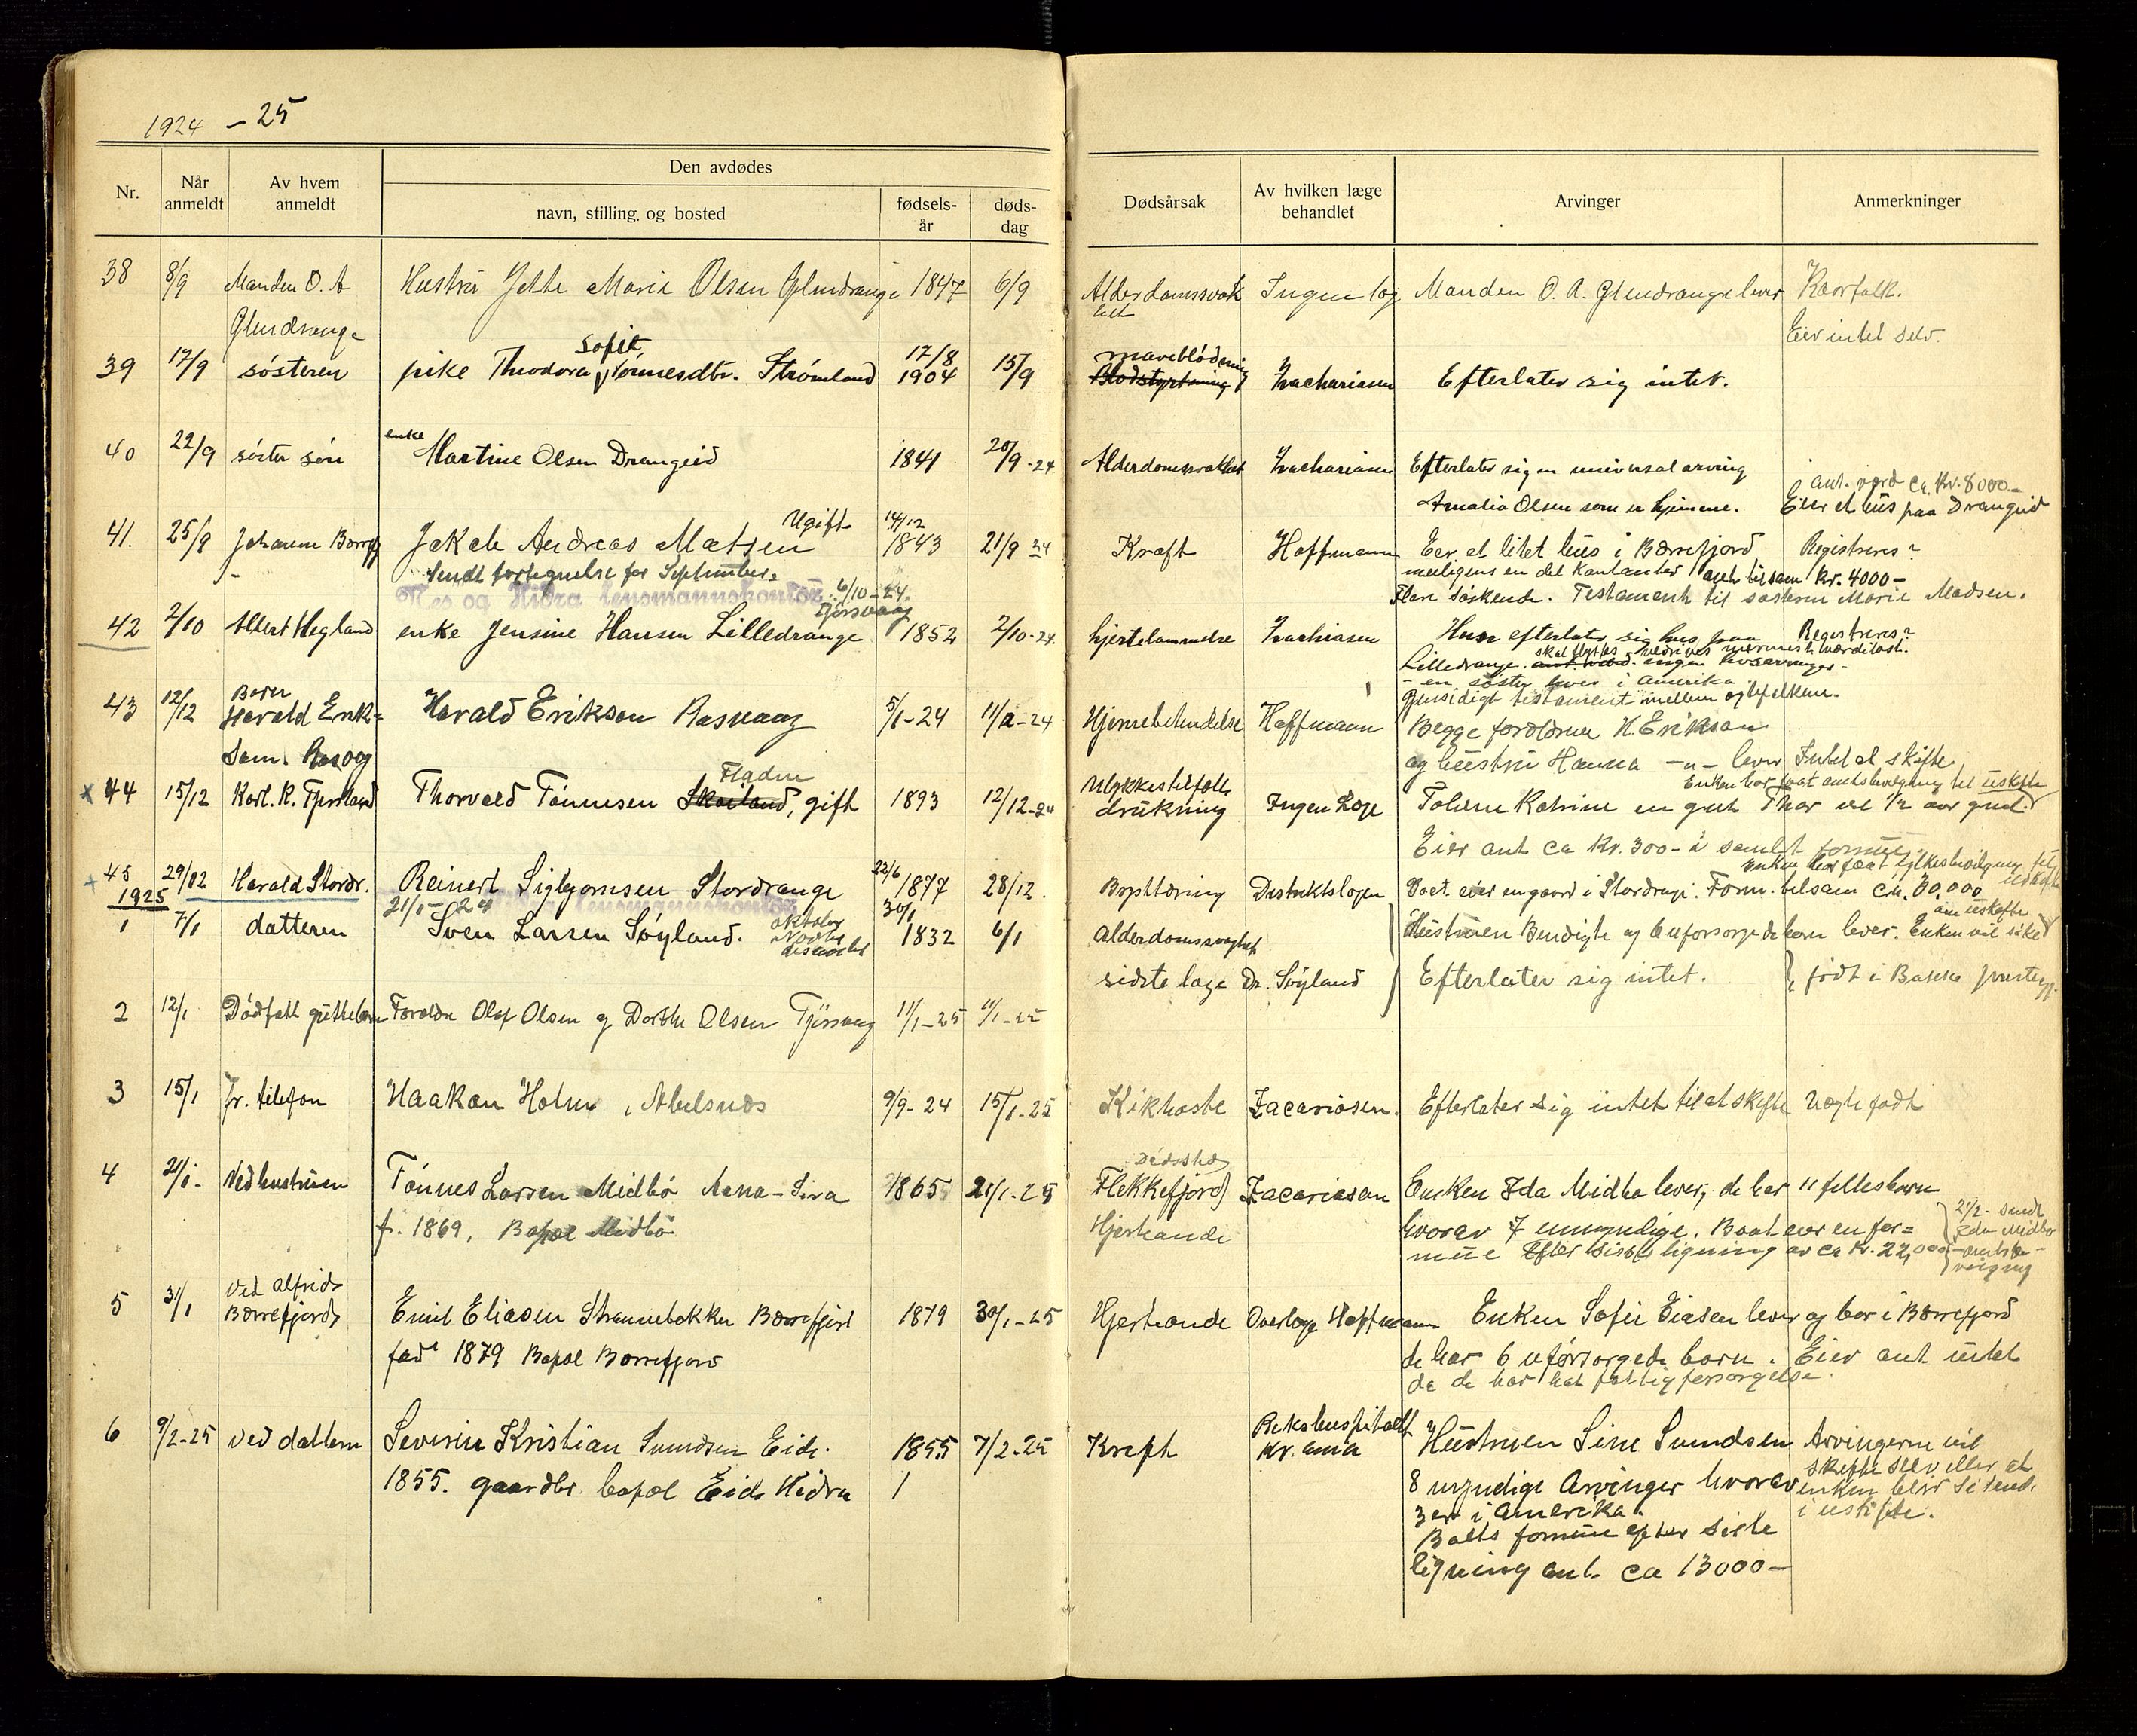 1924 - 25
Nr.
Når anmeldt
Av hvem anmeldt
Den avdødes
navn, stilling. og bosted
fødsels-år
døds-dag
Dødsårsak
Av hvilken læge behandlet
Arvinger
Anmerkninger
38 8/9 Manden O. A Hustru Jette Marie Olsen Glendrange 1847 6/9 Alderdomssvak Ingen læg Manden O. A. Glendrange lever Kaarfolk.
Glendrange het Eier intet selv.
39 17/9 søsteren pike Thodora Sofie Tønnesdtr. Strømland 17/8 1904 15/9 maveblødning Zachariasen Efterlater sig intet.
Blodstyrtning
40 22/9 søster søn enke Martine Olsen Drangeid 1841 20/9-24 Alderdomssvakhet Zachariasen Efterlater sig en universal arving
ant. værd ca. kr. 8000.-
Amalia Olsen som er hjemme. Eier et hus paa Drangeid
41. 25/9 Jakob Andreas Matsen Ugift 14/12 1843 21/9 24 Kræft Hoffmann Eier et litet hus i Børrefjord Registreres?
Sendt fortegnelse for September. en del kontanter ant tilsam kr. 4000-
Nes og Hidra lensmannskontor 6/10-24. Flere søskende. Testament til søsteren Marie Madsen.
42 2/10 Albert Hegland enke Jensine Hansen Lilledrange Tjørsvaag 1852 2/10-24. hjertelammelse Zachriasen Hun efterlater sig hus paa Registreres?
Lilledrange. ant. værd. ingen livsarvinger -
- en søster lever i Amerika
Gjensidigt testament mellem egtefolkene.
43 12/12 Baser Harald Erik= Harald Eriksen Rasvaag 5/1-24 11/12-24 Hjernebetendelse Hoffmann Begge forældrene H. Erikson
sen. Rasvag og hustru Hanna -n- lever Intet at skifte
44 15/12 Karl. K. Tjersland Thorvald Tønnesen Skailand, Fladen gift 1893 12/12-24 Ulykkestilfælle drukning Ingen Læge Tolene Katrine en gut Thor vel 1/2 aar gml.
Enken har faat amtsbevilgning til uskifte
Eier ant ca kr. 300- i samlet formue
Enken har faat fylkesbevilgning til uskifte
45 29/12 Harald Stordr. Reinert Sigbjørnsen Stordrange 22/6 1877 28/12. Brysttæring Distriktslægen Boet. eier en gaard i Stordrange. Form. tilsam ca. 30,000
1925 21/1-24
1 7/1 datteren Sven Larsen Søyland. oktober Novbr desember 30/1 1832 6/1 alderdomssvaghet Hustruen Bendigte og 6 uforsørgede barn lever. Enken vil søke om uskifte
sidste læge Dr. Søyland Efterlater sig intet. født i Bakke prestegj.
2 12/1 Dødfødt guttebarn Forældre Olaf Olsen og Dorthe Olsen Tjørsvaag 11/1-25 11/1-25
3 15/1 pr. telefon Haakon Holm, Abelsnæs 9/9-24 15/1-25 Kikhoste Zacariasen. Efterlater sig intet til at skifte Uegte født
4 21/1- Ved hustruen Tønnes Larsen Midbø Aana-Sira 1865 21/1-25 Dødssted Flekkefjord Zacariasen Enken Ida Midbø lever, de har 11 fellesbarn
f. 1869, Bopæl Midbø Hjerteande hvorav 7 umyndige. Boet eier en for=
mue efter siste ligning av ca kr. 22,000
2/2- sendt Ida Midbø -amtsbe-vilgning
5 31/1 ved Alfrid Børrefjord Emil Eliasen Strannebakken Børrefjord 1879 30/1-25 Hjerteande Overlæge Hoffmann Enken Sofie Eiasen lever og bor i Børrefjord
fød 1879 Bopæl Børrefjord de har 6 uforsørgede barn. Eier ant intet
da de har hat fattigforsørgelse.
6 9/2-25 ved datteren Severin Kristian Svendsen Eide. 1855 7/2-25 Kreft Rikshospitalet Kr. ania Hustruen Sine Svendsen Arvingerne vil
1855. gaardbr. bopæl Eide Hidra 8 myndige Arvinger hvorav skifte selv eller at
3 er i Amerika. enken blir sidend.
i uskifte.
Boets formue efter siste
ligning ant. ca 13000-